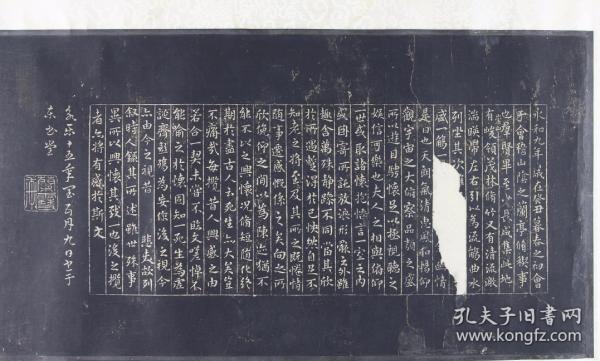 永和九年歲在癸丑暮春之初會
于會稽山陰之蘭亭脩禊事
也羣賢畢至少長咸集此地
有峻領茂林脩竹又有清流激
湍映帶左右引以為流觴曲水
列坐其次
盛一觴 幽情
是日也天朗氣清惠風和暢仰
觀宇宙之大俯察品類之盛
所以遊目騁懷足以極視聽之
娛信可樂也夫人之相與俯仰
一世或取諸懷抱悟言一室之內
或因寄所託放浪形骸之外雖
趣舍萬殊靜躁不同當其欣
於所遇暫得於己怏然自足不
知老之將至及其所之既惓情
隨事遷感慨係之矣向之所
欣俛仰之間以為陳迹猶不
能不以之興懷況脩短隨化終
期於盡古人云死生亦大矣豈
不痛哉每攬昔人興感之由
若合一契未嘗不臨文嗟悼不
能喻之於懷固知一死生為虛
誕齊彭殤為妄作後之視今
亦由今之視昔 悲夫故列
敘時人錄其所述雖世殊事
異所以興懷其致一也後之攬
者亦將有感於斯文
永樂十五年 月九日書于
東書堂
孔夫子旧书网
kongfz.com